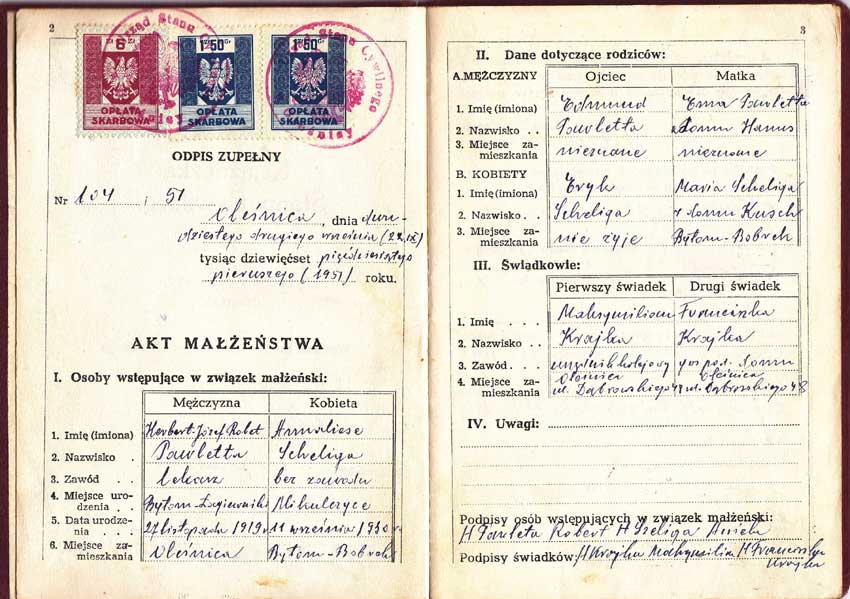 2
6 ZŁ
1 ZŁ 50 Gr
1 ZŁ 50 Gr
OPŁATA SKARBOWA
OPŁATA SKARBOWA
OPŁATA SKARBOWA
Urząd Stanu
Stanu Cywilnego
ODPIS ZUPEŁNY
Nr 104 / 51
Oleśnica, dnia dwu-
dziestego drugiego września (22.IX)
tysiąc dziewięćset pięćdziesiątego
pierwszego (1951) roku.
AKT MAŁŻEŃSTWA
I. Osoby wstępujące w związek małżeński:
Mężczyzna Kobieta
1. Imię (imiona) Herbert Józef Robert Annaliese
2. Nazwisko . Pawletta Scheliga
3. Zawód . . lekarz bez zawodu
4. Miejsce uro-
dzenia . . Bytom-Łagiewniki Mikulczyce
5. Data urodze-
nia . . . 27 listopada 1919 r 11 września 1930 r.
6. Miejsce za-
mieszkania Oleśnica Bytom-Bobrek
3
II. Dane dotyczące rodziców:
A. MĘŻCZYZNY Ojciec Matka
1. Imię (imiona) Edmund Ema Pawletta
2. Nazwisko . . Pawletta z domu Hanus
3. Miejsce za-
mieszkania nieznane nieznane
B. KOBIETY
1. Imię (imiona) Eryk Maria Scheliga
2. Nazwisko . . Scheliga z domu Kusch
3. Miejsce za-
mieszkania nie żyje Bytom-Bobrek
III. Świadkowie:
Pierwszy świadek Drugi świadek
1. Imię . . . Maksymilian Franciszka
2. Nazwisko . . Krajka Krajka
3. Zawód . . . urzędnik kolejowy gosp. domu
4. Miejsce za-
mieszkania Oleśnica ul. Dąbrowskiego 48 Oleśnica ul. Dąbrowskiego 48
IV. Uwagi:
Podpisy osób wstępujących w związek małżeński:
H Pauleta Robert H Szeliga
Podpisy świadków: H Krajka Maksymilian H Franciszka
Krajka